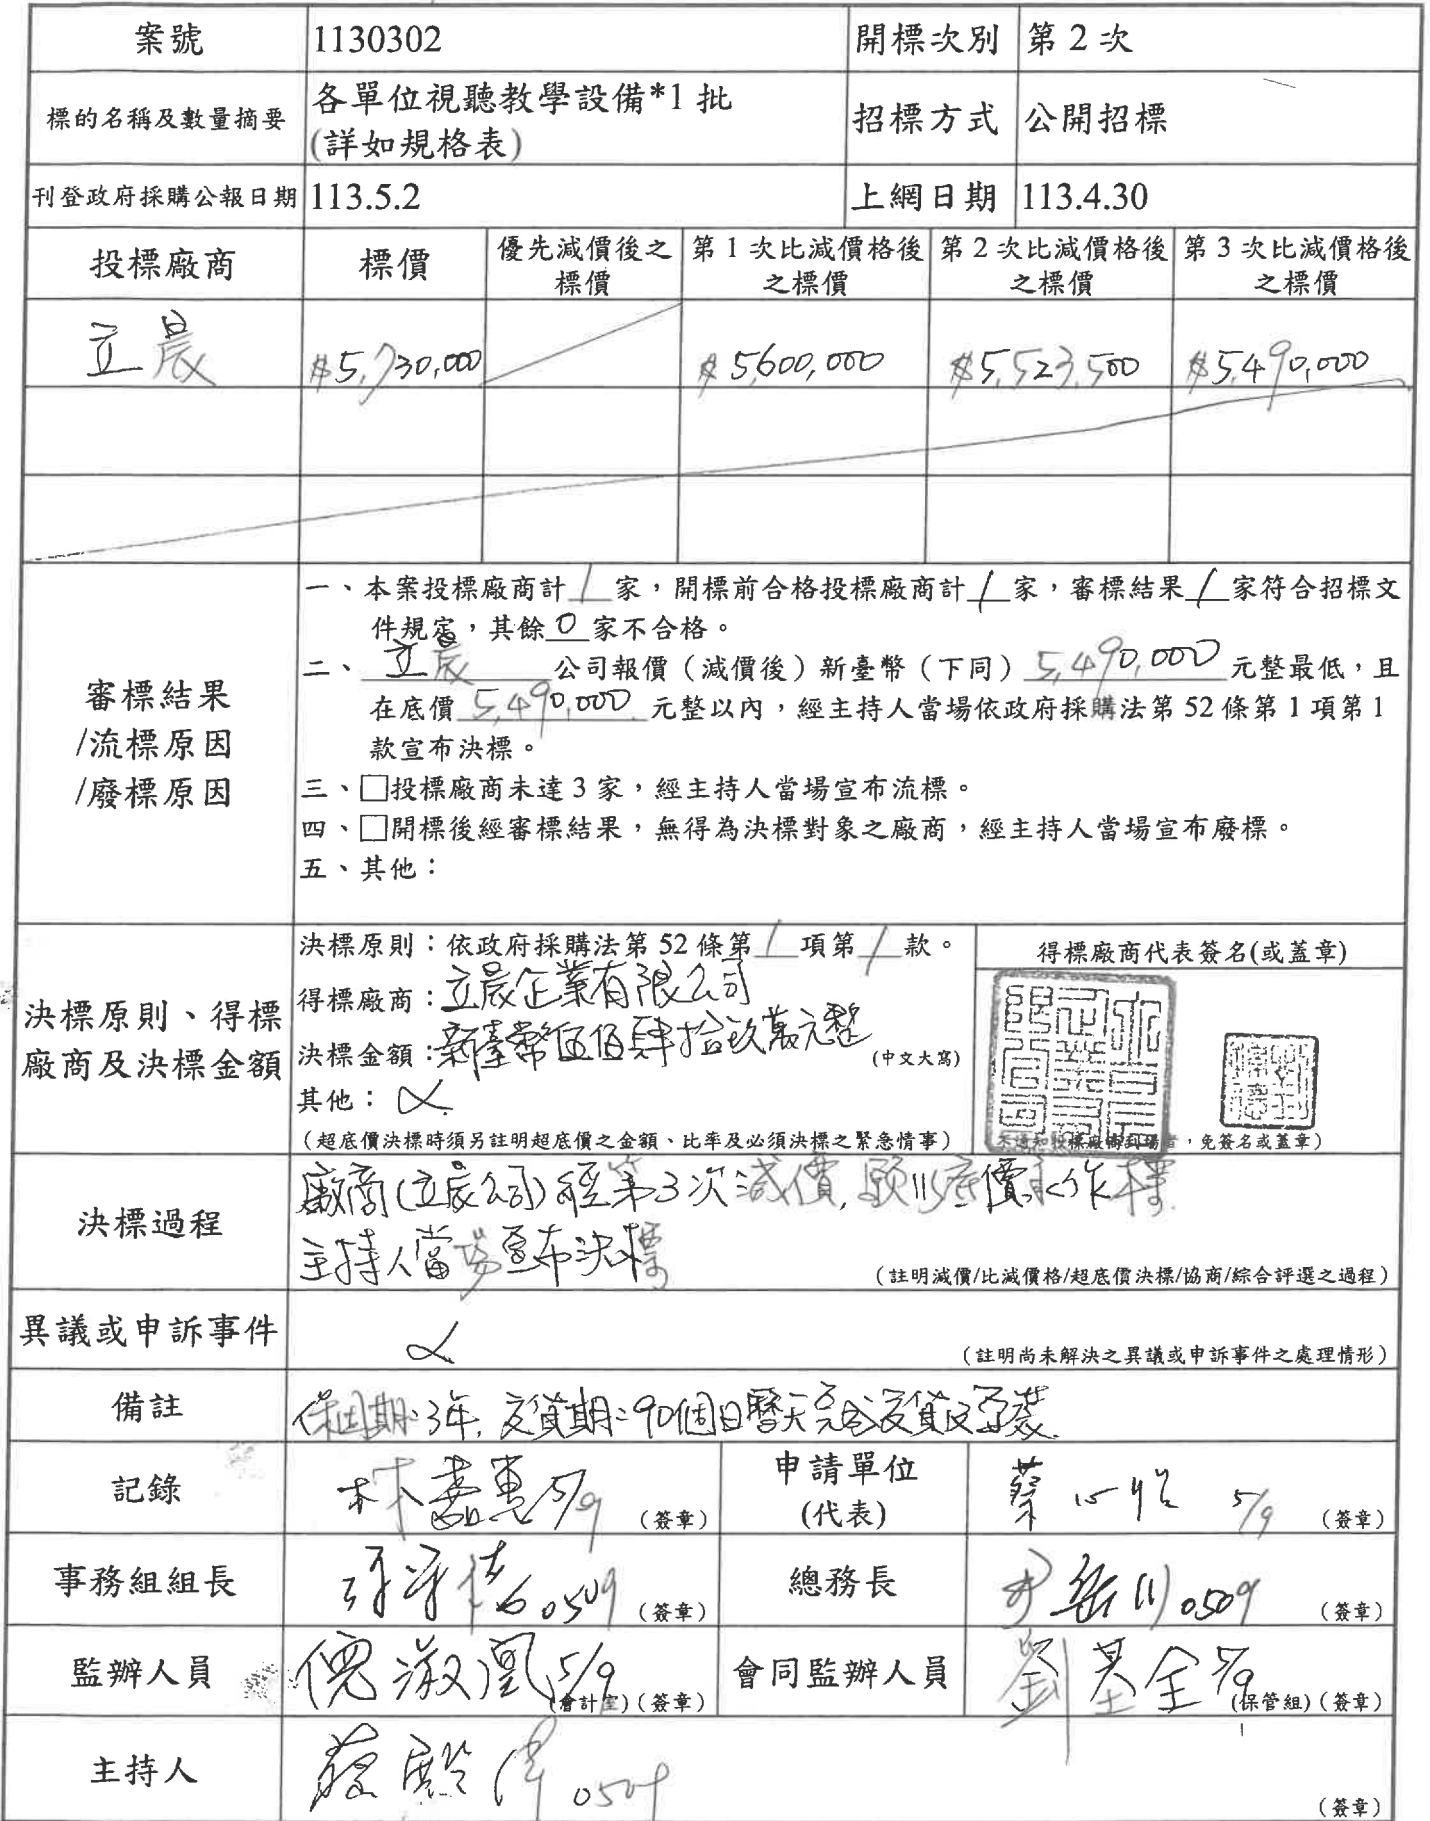 案號 1130302 開標次別 第 2 次
標的名稱及數量摘要 各單位視聽教學設備*1 批
(詳如規格表) 招標方式 公開招標
刊登政府採購公報日期 113.5.2 上網日期 113.4.30
投標廠商 標價 優先減價後之標價 第 1 次比減價格後之標價 第 2 次比減價格後之標價 第 3 次比減價格後之標價
立晨 $5,730,000 $5,600,000 $5,523,500 $5,490,000
審標結果
/流標原因
/廢標原因
一、本案投標廠商計 1 家，開標前合格投標廠商計 1 家，審標結果 1 家符合招標文
件規定，其餘 0 家不合格。
二、立晨 公司報價（減價後）新臺幣（下同）5,490,000 元整最低，且
在底價 5,490,000 元整以內，經主持人當場依政府採購法第 52 條第 1 項第 1
款宣布決標。
三、□投標廠商未達 3 家，經主持人當場宣布流標。
四、□開標後經審標結果，無得為決標對象之廠商，經主持人當場宣布廢標。
五、其他：
決標原則、得標
廠商及決標金額
決標原則：依政府採購法第 52 條第 1 項第 1 款。
得標廠商：立晨企業有限公司
決標金額：新臺幣伍佰肆拾玖萬元整 (中文大寫)
其他：
（超底價決標時須另註明超底價之金額、比率及必須決標之緊急情事）
得標廠商代表簽名(或蓋章)
未通知投標廠商到場者，免簽名或蓋章）
決標過程
廠商(立晨公司)經第3次減價，願以底價承作
主持人當場宣布決標
（註明減價/比減價格/超底價決標/協商/綜合評選之過程）
異議或申訴事件
（註明尚未解決之異議或申訴事件之處理情形）
備註 保固期:3年，交貨期:90個日曆天完成交貨及安裝
記錄 林嘉惠 5/9 （簽章）
申請單位
(代表) 蔡 5/9 （簽章）
事務組組長 0509 （簽章）
總務長 0509 （簽章）
監辦人員 倪淑凰 5/9 (會計室)（簽章）
會同監辦人員 劉基全 5/9 (保管組)（簽章）
主持人 0509 （簽章）